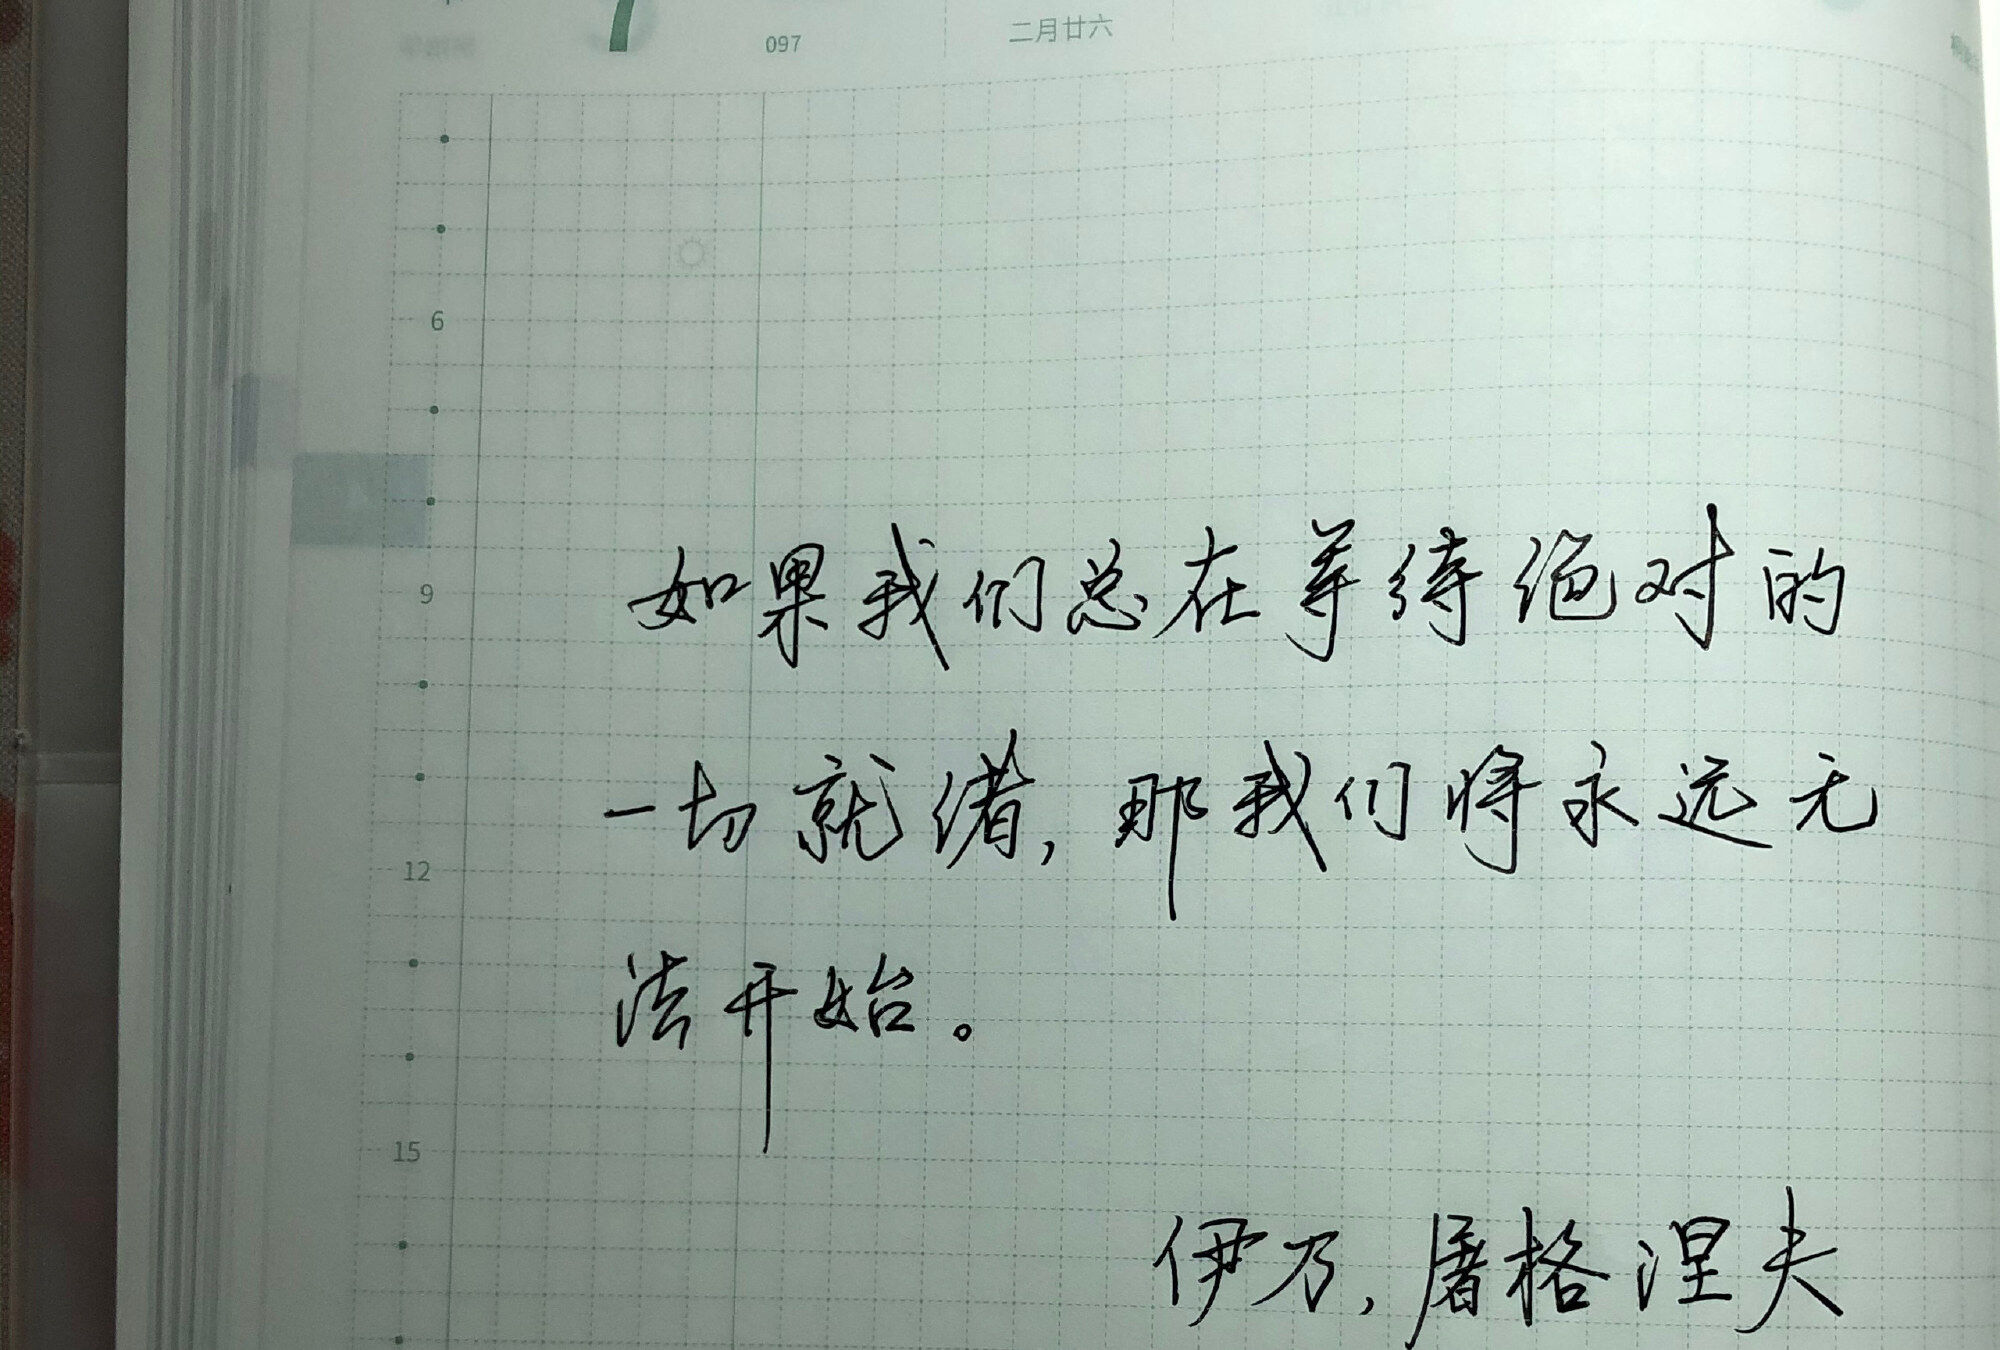 7
097
二月廿六
6
9
12
15
如果我们总在等待绝对的
一切就绪,那我们将永远无
法开始。
伊乃,屠格涅夫